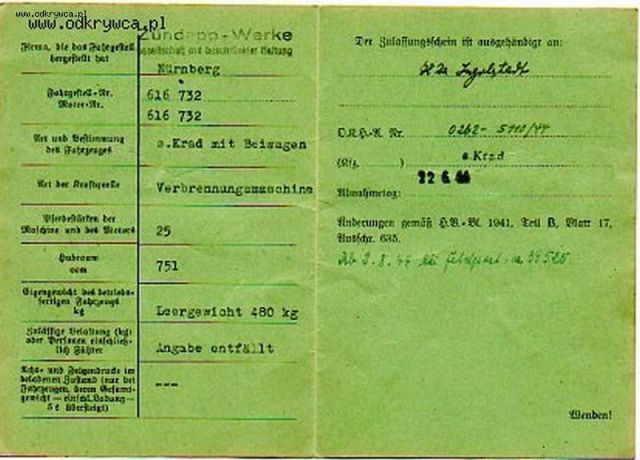 www.odkrywca.pl
www.odkrywca.pl
Zündapp-Werke
Gesellschaft mit beschränkter Haftung
Firma, die das Fahrgestell
hergestellt hat
Nürnberg
Fahrgestell-Nr.
616 732
Motor-Nr.
616 732
Art und Bestimmung
des Fahrzeuges
s.Krad mit Beiwagen
Art der Kraftquelle
Verbrennungsmaschine
Pferdestärken der
Maschine und des Motors
25
Hubraum
ccm
751
Eigengewicht des betriebs-
fertigen Fahrzeugs
kg
Leergewicht 480 kg
Zulässige Belastung (kg)
oder Personen einschließ-
lich Führer
Angabe entfällt
Achs- und Felgendrucke im
beladenen Zustand (nur bei
Fahrzeugen, deren Gesamt-
gewicht — einschl. Ladung —
5 t übersteigt)
---
Der Zulassungsschein ist ausgehändigt an:
Ingolstadt
O.K.H.-A. Nr. 0262-5110/44
(Kfz. ) s.Krad
Abnahmetag: 22 6.44
Änderungen gemäß H.V.-Bl. 1941, Teil B, Blatt 17,
Ausschr. 635.
Ab 2.8.44 bei Feldpost 39520
Wenden!